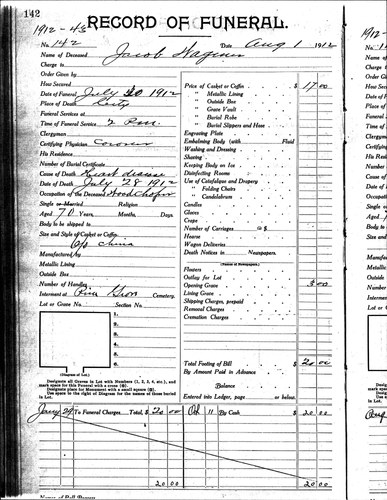 142
RECORD OF FUNERAL.
1912-43
No. 142 Date Aug 1 1912
Name of Deceased Jacob Wagner
Charge to
Order Given by
How Secured
Date of Funeral July 30 1912
Place of Death City
Funeral Services at
Time of Funeral Service 2 P.m.
Clergyman
Certifying Physician Coroner
His Residence
Number of Burial Certificate
Cause of Death Heart disease
Date of Death July 28 1912
Occupation of the Deceased Woodchoper
Single or Married Religion
Aged 70 Years, Months, Days.
Body to be shipped to
Size and Style of Casket or Coffin
China
Manufactured by
Metallic Lining
Outside Box
Number of Handles
Interment at Cemetery.
Lot or Grave No. Section No.
1.
2.
3.
4.
5.
6.
(Diagram of Lot.)
Designate all Graves in Lot with Numbers (1, 2, 3, 4, etc.), and
mark space for this Funeral with a cross
Designate place for Monument with a small square
Use space to the right of Diagram for the names of those buried
in Lot.
Price of Casket or Coffin $ 17 00
" Metallic Lining
" Outside Box
" Grave Vault
" Burial Robe
" Burial Slippers and Hose
Engraving Plate
Embalming Body (with Fluid
Washing and Dressing
Shaving
Keeping Body on Ice
Disinfecting Rooms
Use of Catafalque and Drapery
" Folding Chairs
" Candelabrum
Candles
Gloves
Crape
Number of Carriages @ $
Hearse
Wagon Deliveries
Death Notices in Newspapers.
(Names of Newspapers)
Flowers
Outlay for Lot
Opening Grave 3 00
Lining Grave
Shipping Charges, prepaid
Removal Charges
Cremation Charges
Total Footing of Bill $ 20 00
By Amount Paid in Advance
Balance
Entered into Ledger, page or below.
To Funeral Charges Total, $ 20 00
Oct 11 By Cash $ 20 00
20 00
20 00